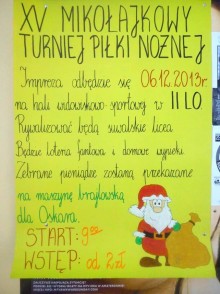 XV MIKOŁAJKOWY
TURNIEJ PIŁKI NOŻNEJ
Impreza odbędzie się 06.12.2013r.
na hali widowiskowo-sportowej w II LO
Rywalizować będą suwalskie licea
Będzie loteria fantowa i domowe wypieki
Zebrane pieniądze zostaną przekazane
na maszynę brajlowską
dla Oskara.
START: 9⁰⁰
WSTĘP: od 2 zł